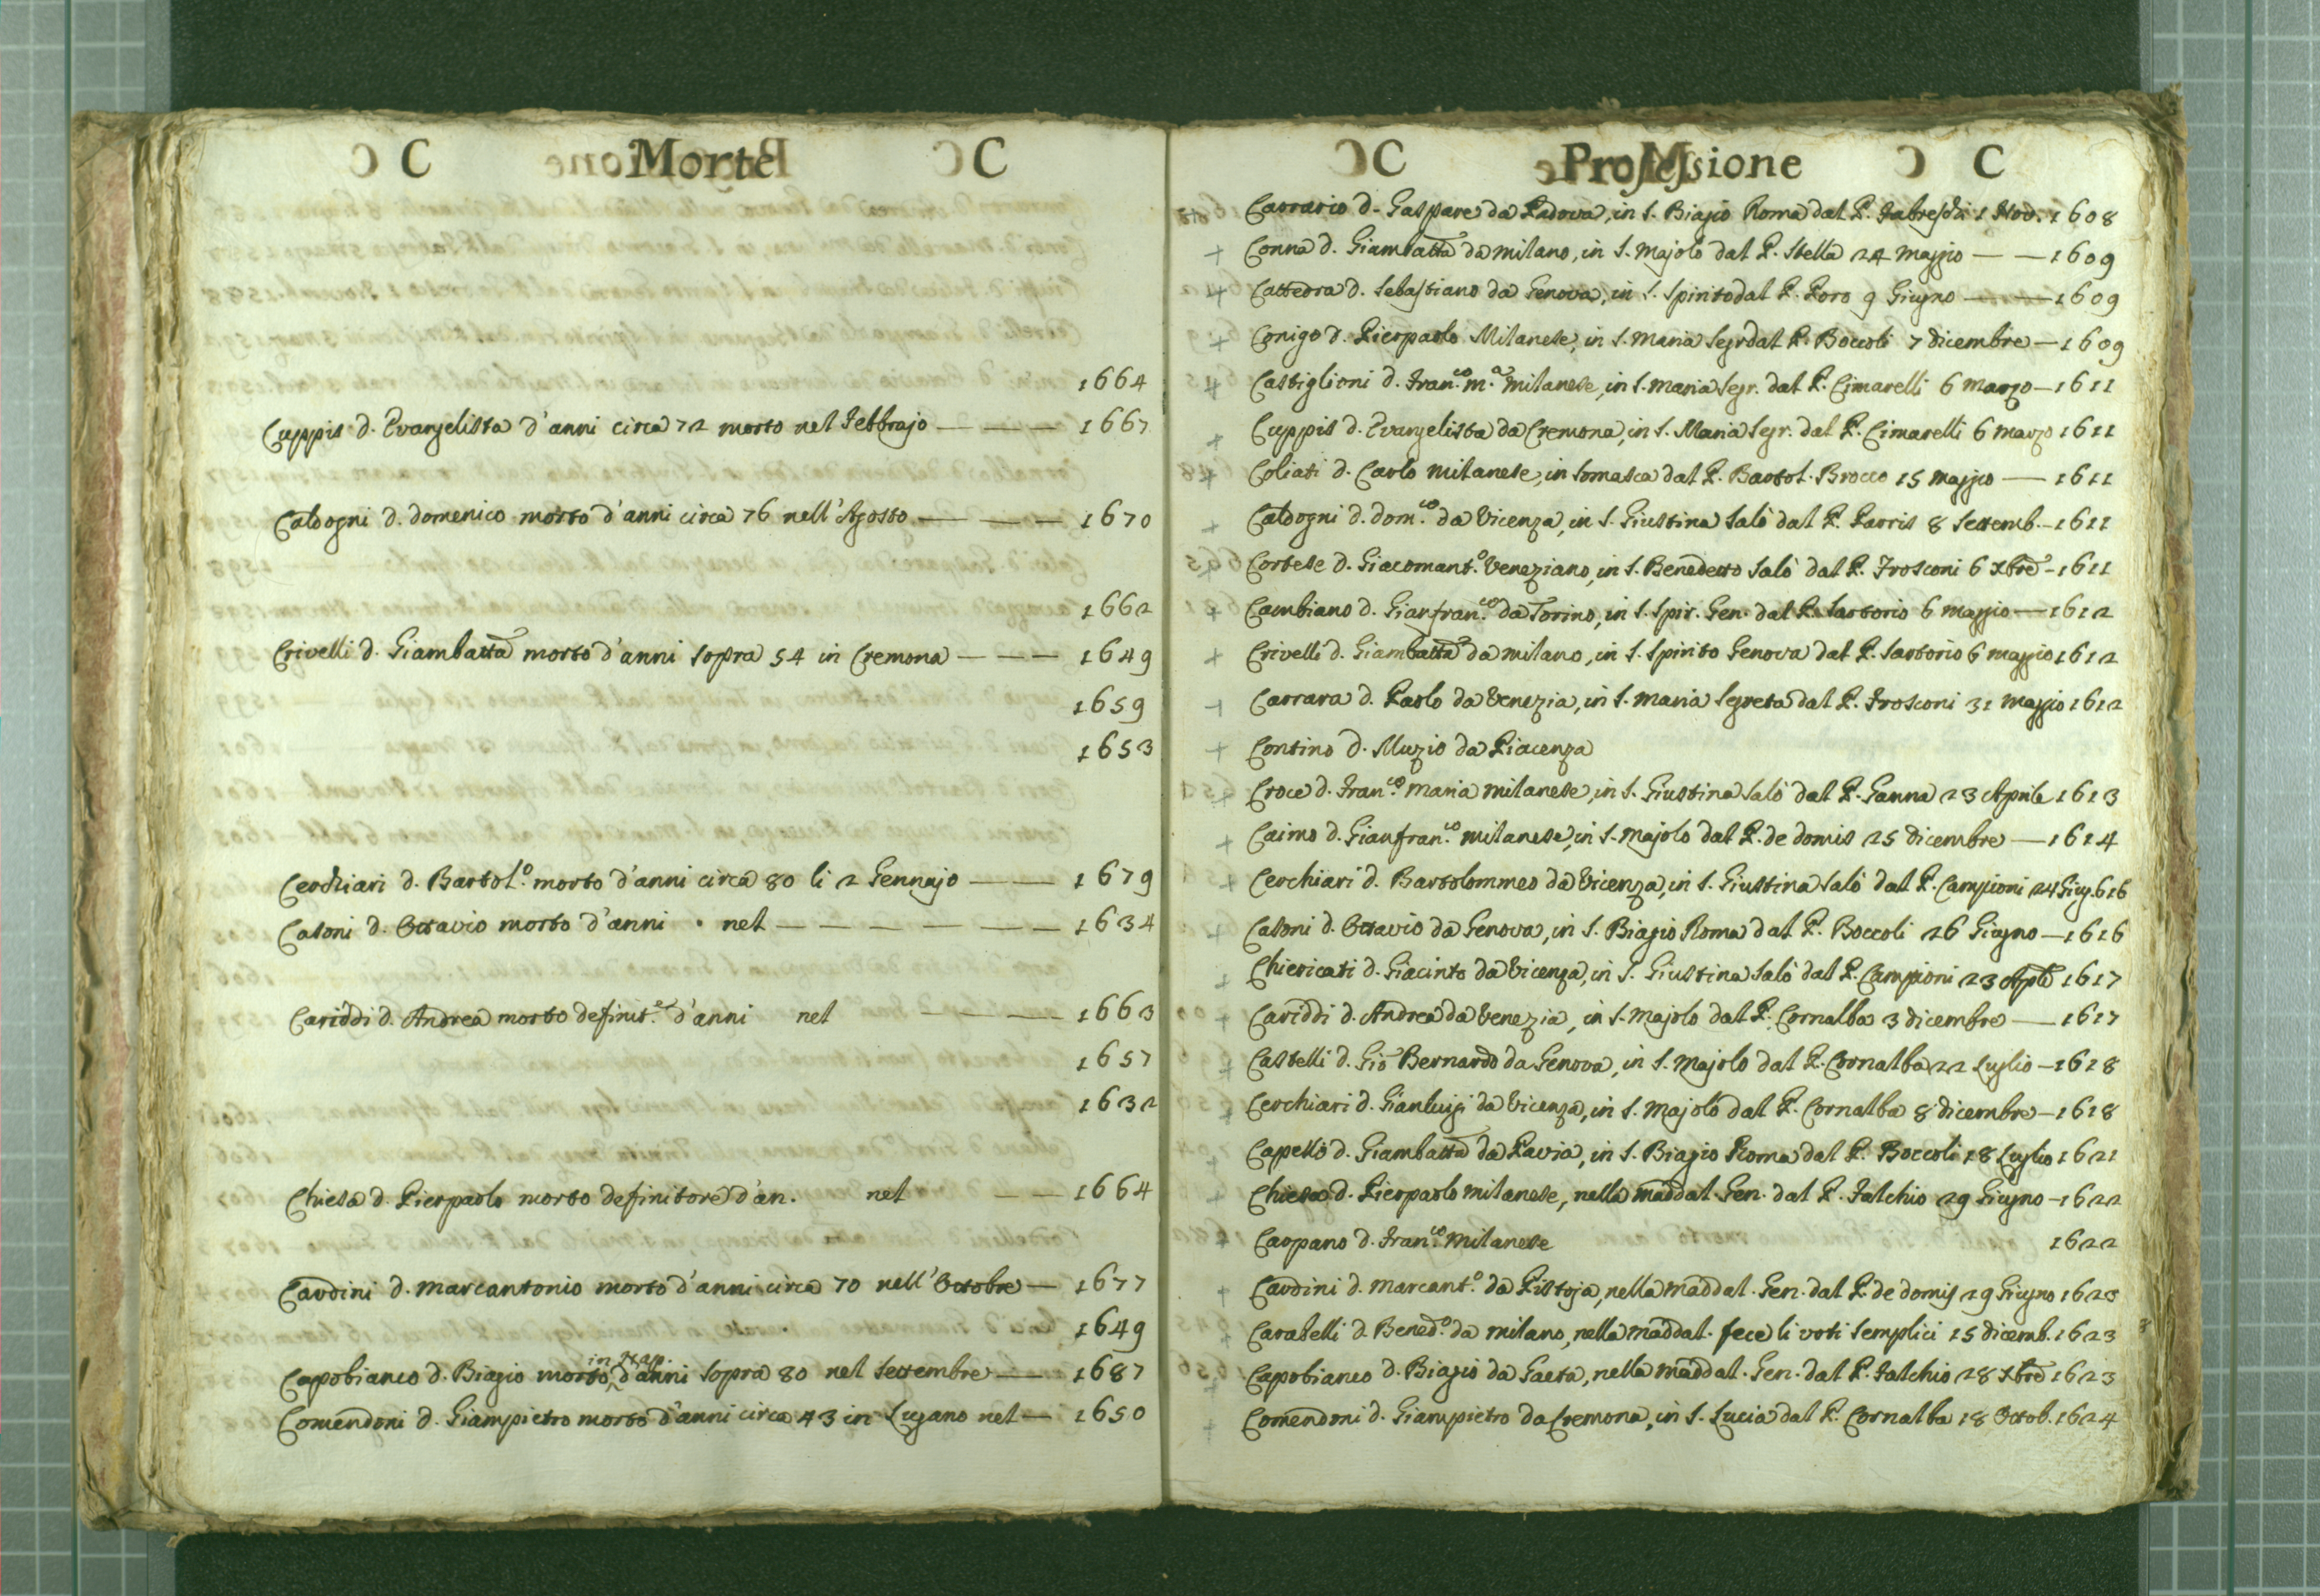 C Morte C
1664
Cuppis d. Evangelista d'anni circa 72 morto nel Febbrajo — — — 1667
Caldogni d. domenico morto d'anni circa 76 nell'Agosto — — — 1670
1662
Crivelli d. Giambatta morto d'anni sopra 54 in Cremona — — — 1649
1659
1653
Cerchiari d. Bartol.o morto d'anni circa 80 li 2 Gennajo — — 1679
Casoni d. Ottavio morto d'anni . nel — — — — — — — 1634
Cariddi d. Andrea morto definit.e d'anni nel — — — 1663
1657
1632
Chiesa d. Pierpaolo morto definitore d'an. nel — — 1664
Cardini d. Marcantonio morto d'anni circa 70 nell'Octobre — 1677
1649
in Nap.
Capobianco d. Biagio morto, d'anni sopra 80 nel Settembre — 1687
Comendoni d. Giampietro morto d'anni circa 43 in Lugano nel — 1650
C Professione C
Carrario d. Gaspare da Padova, in S. Biagio Roma dal P. 1 Nov. 1608
+ Conna d. Giambatta da milano, in S. Majolo dal P. Stella 24 maggio — — 1609
+ Cattedra d. Sebastiano da Genova, in S. Spirito dal P. Poro 9 Giugno — — 1609
+ Conigo d. Pierpaolo Milanese, in S. Maria Segr dal P. Boccoli 7 dicembre — 1609
+ Castiglioni d. Fran.co m.a milanese, in S. maria Segr. dal P. Cimarelli 6 marzo — 1611
+ Cuppis d. Evangelista da Cremona, in S. Maria Segr. dal P. Cimarelli 6 marzo 1611
+ Coliati d. Carlo milanese, in Somasca dal P. Bartol. Brocco 15 maggio — 1611
+ Caldogni d. Dom.co da Vicenza, in S. Giustina Salò dal P. Parris 8 Settemb. — 1611
+ Cortese d. Giacomant.o Veneziano, in S. Benedetto Salò dal P. Frosconi 6 Xbre — 1611
+ Cambiano d. Gianfran.co da Torino, in S. Spir. Gen. dal P. Sartorio 6 maggio — 1612
+ Crivelli d. Giambatta da milano, in S. Spirito Genova dal P. Sartorio 6 maggio 1612
+ Carrara d. Paolo da Venezia, in S. Maria Segreta dal P. Frosconi 31 maggio 1612
+ Contino d. Muzio da Piacenza
+ Croce d. Fran.co maria milanese, in S. Giustina Salò dal P. Ganna 23 Aprile 1613
+ Caimo d. Gianfran.co milanese, in S. Majolo dal P. de domis 25 dicembre — 1614
+ Cerchiari d. Bartolommeo da Vicenza, in S. Giustina Salò dal P. Campioni 24 Giug. 616
+ Casoni d. Ottavio da Genova, in S. Biagio Roma dal P. Boccoli 26 Giugno — 1616
+ Chiericati d. Giacinto da Vicenza, in S. Giustina Salò dal P. Campioni 23 Aple 1617
+ Cariddi d. Andrea da Venezia, in S. Majolo dal P. Cornalba 3 dicembre — 1617
+ Castelli d. Gio Bernardo da Genova, in S. Majolo dal P. Cornalba 22 Luglio — 1618
+ Cerchiari d. Gianluigi da Vicenza, in S. Majolo dal P. Cornalba 8 dicembre — 1618
+ Capello d. Giambatta da Pavia, in S. Biagio Roma dal P. Boccoli 18 Luglio 1621
+ Chiesa d. Pierpaolo milanese, nella maddal. Gen. dal P. Falchio 29 Giugno — 1622
+ Carpano d. Fran.co milanese 1622
+ Cardini d. Marcant.o da Pistoja, nella maddal. Gen. dal P. de domis 29 Giugno 1623
+ Carabelli d. Bened.o da milano, nella maddal. fece li voti semplici 15 dicemb. 1623
+ Capobianco d. Biagio da Gaeta, nella maddal. Gen. dal P. Falchio 28 Xbre 1623
+ Comendoni d. Giampietro da Cremona, in S. Lucia dal P. Cornalba 18 Octob. 1624